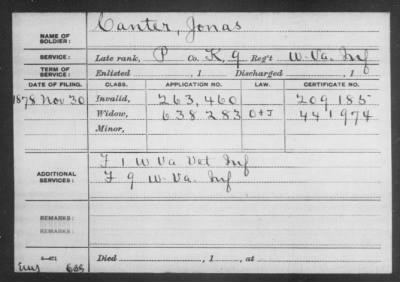 NAME OF SOLDIER: Canter, Jonas
SERVICE: Late rank, P Co. K, 9 Reg't W. Va. Inf
TERM OF SERVICE: Enlisted , 1 Discharged , 1
DATE OF FILING. CLASS. APPLICATION NO. LAW. CERTIFICATE NO.
1878 Nov 30 Invalid, 263,460 209,185
Widow, 638 283 441 974
Minor,
ADDITIONAL SERVICES: F 1 W Va Vet Inf
F 9 W. Va. Inf
REMARKS:
REMARKS:
Died , 1 , at